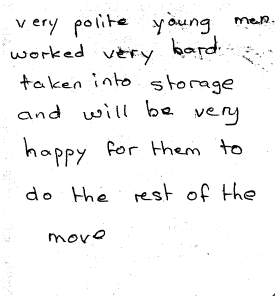 very polite young men.
worked very hard.
taken into storage
and will be very
happy for them to
do the rest of the
move